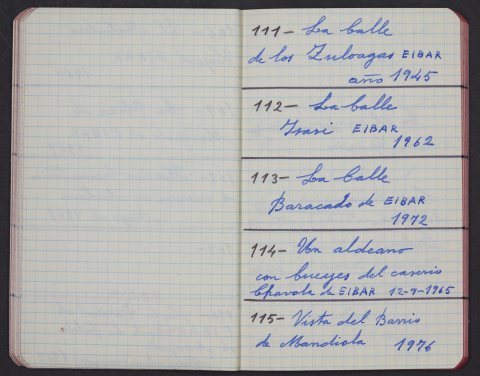 111- La Calle
de los Zuloagas EIBAR
año 1945
112- La Calle
Isasi EIBAR
1962
113- La Calle
Baracado de EIBAR
1972
114- Un aldeano
con bueyes del caserio
Chavola de EIBAR 12-9-1965
115- Vista del Barrio
de Mandiola 1976